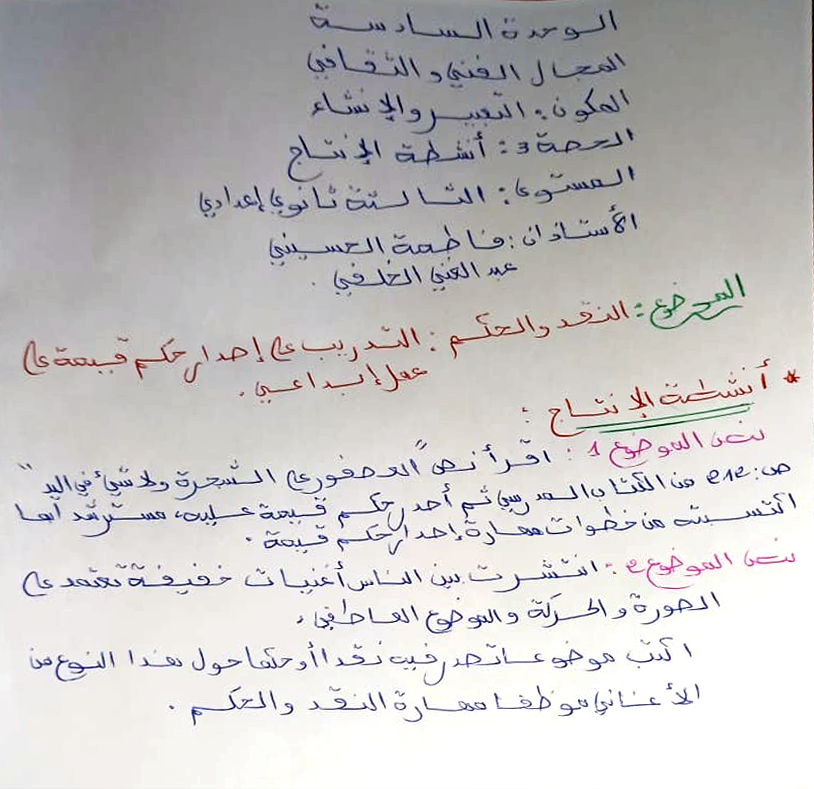 الوحدة السادسة
المجال الفني والثقافي
المكون: التعبير والإنشاء
الحصة 3: أنشطة الإنتاج
المستوى: الثالثة ثانوي إعدادي
الأستاذان: فاطمة الحسيني
عبد الغني الخلفي.
الموضوع: النقد والحكم: التدريب على إصدار حكم قيمة على
عمل إبداعي.
* أنشطة الإنتاج:
نص الموضوع 1: اقرأ نص "العصفور على الشجرة ولا شيء في اليد"
ص: 212 من الكتاب المدرسي ثم أصدر حكم قيمة عليه، مسترشدا بما
اكتسبته من خطوات مهارة إصدار حكم قيمة.
نص الموضوع 2: انتشرت بين الناس أغنيات خفيفة تعتمد على
الصورة والحركة والموضوع العاطفي،
اكتب موضوعا تصدر فيه نقدا أو حكما حول هذا النوع من
الأغاني موظفا مهارة النقد والحكم.